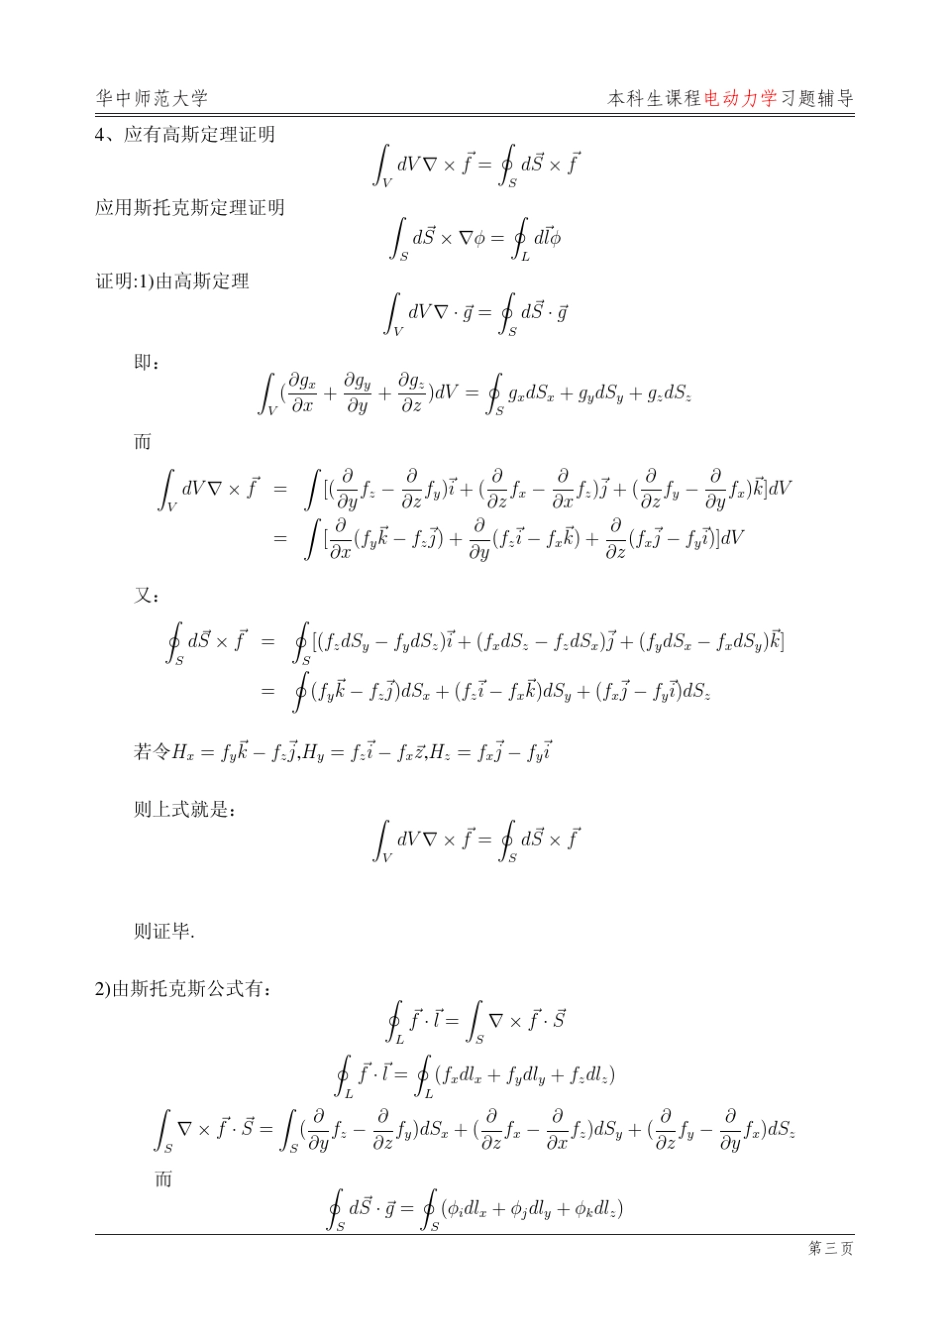 华中师范大学 本科生课程电动力学习题辅导
4、应有高斯定理证明
$$\int_V dV\nabla \times \vec{f} = \oint_S d\vec{S} \times \vec{f}$$
应用斯托克斯定理证明
$$\int_S d\vec{S} \times \nabla\phi = \oint_L d\vec{l}\phi$$
证明:1)由高斯定理
$$\int_V dV\nabla \cdot \vec{g} = \oint_S d\vec{S} \cdot \vec{g}$$
即:
$$\int_V (\frac{\partial g_x}{\partial x} + \frac{\partial g_y}{\partial y} + \frac{\partial g_z}{\partial z})dV = \oint_S g_x dS_x + g_y dS_y + g_z dS_z$$
而
$$\int_V dV\nabla \times \vec{f} = \int [(\frac{\partial}{\partial y}f_z - \frac{\partial}{\partial z}f_y)\vec{i} + (\frac{\partial}{\partial z}f_x - \frac{\partial}{\partial x}f_z)\vec{j} + (\frac{\partial}{\partial z}f_y - \frac{\partial}{\partial y}f_x)\vec{k}]dV$$
$$= \int [\frac{\partial}{\partial x}(f_y\vec{k} - f_z\vec{j}) + \frac{\partial}{\partial y}(f_z\vec{i} - f_x\vec{k}) + \frac{\partial}{\partial z}(f_x\vec{j} - f_y\vec{i})]dV$$
又:
$$\oint_S d\vec{S} \times \vec{f} = \oint_S [(f_z dS_y - f_y dS_z)\vec{i} + (f_x dS_z - f_z dS_x)\vec{j} + (f_y dS_x - f_x dS_y)\vec{k}]$$
$$= \oint (f_y\vec{k} - f_z\vec{j})dS_x + (f_z\vec{i} - f_x\vec{k})dS_y + (f_x\vec{j} - f_y\vec{i})dS_z$$
若令$H_x = f_y\vec{k} - f_z\vec{j}$,$H_y = f_z\vec{i} - f_x\vec{z}$,$H_z = f_x\vec{j} - f_y\vec{i}$
则上式就是:
$$\int_V dV\nabla \times \vec{f} = \oint_S d\vec{S} \times \vec{f}$$
则证毕.
2)由斯托克斯公式有:
$$\oint_L \vec{f} \cdot \vec{l} = \int_S \nabla \times \vec{f} \cdot \vec{S}$$
$$\oint_L \vec{f} \cdot \vec{l} = \oint_L (f_x dl_x + f_y dl_y + f_z dl_z)$$
$$\int_S \nabla \times \vec{f} \cdot \vec{S} = \int_S (\frac{\partial}{\partial y}f_z - \frac{\partial}{\partial z}f_y)dS_x + (\frac{\partial}{\partial z}f_x - \frac{\partial}{\partial x}f_z)dS_y + (\frac{\partial}{\partial z}f_y - \frac{\partial}{\partial y}f_x)dS_z$$
而
$$\oint_S d\vec{S} \cdot \vec{g} = \oint_S (\phi_i dl_x + \phi_j dl_y + \phi_k dl_z)$$
第三页